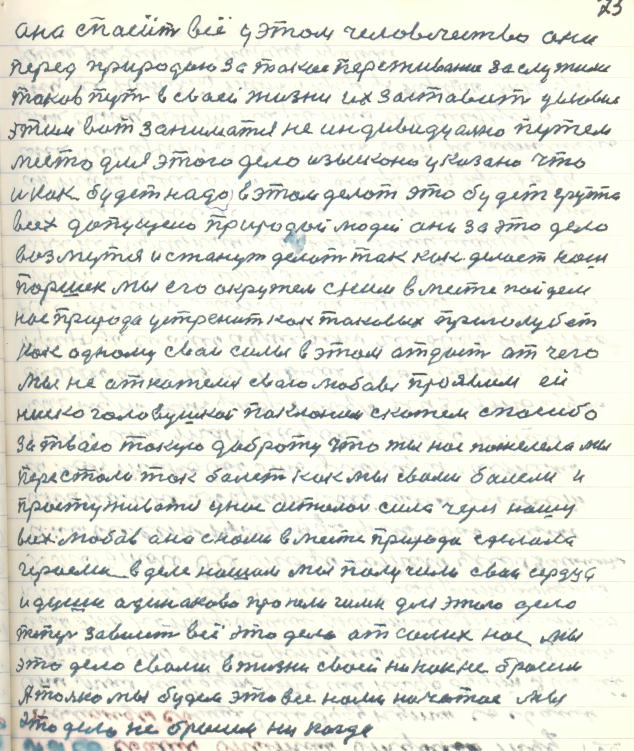 23
ана спасёт всё у этом человечество они
перед природаю за такое переживание заслужили
таков путь в своей жизни их заставит условие
этим вот заниматся не индивидуално путем
место для этого дело изысконо указано что
и как будет надо в этом делат это будет група
всех допущено природай людей они за это дело
возмутся и станут делат так как делает наш
поршек мы его окружем с ним вместе пойдем
нас природа устренит как таковых приголубет
как одному сваи силы в этом атдаст ат чего
мы не аткажемся сваю любавь проявим ей
ниско головушкай паклоним скажем спосибо
за тваю такую доброту что ты нас пожелела мы
перестали так балет как мы свами балели и
простуживатся у нас астался сила через нашу
всех любав ана снами вместе природа сделала
героеми в деле нашам мы палучили сваи сердца
и души адинаково про колигими для этого дело
тепер зависит всё это дело ат самих нас мы
это дело свами в жизни своей никак не бросим
А толко мы будем это все нами начатае мы
это дело не бросим ни когде